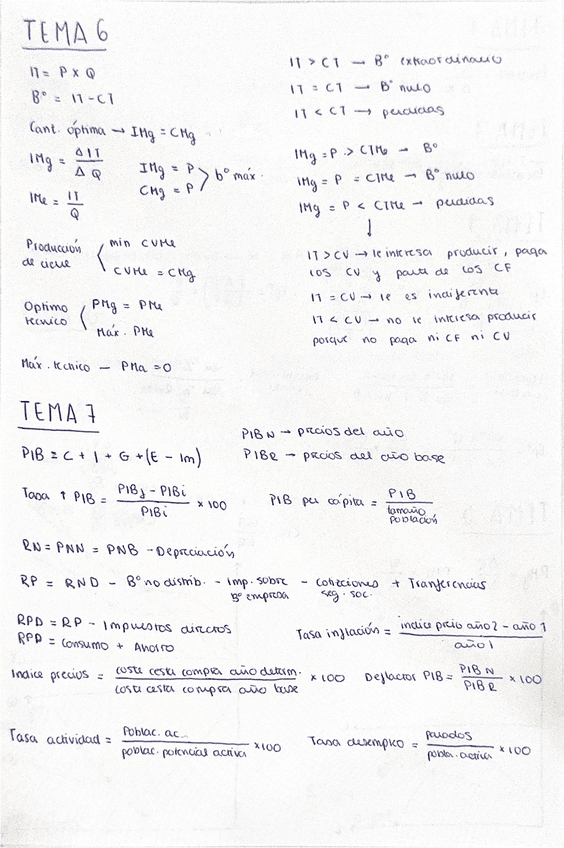 TEMA 6
IT = P x Q
Bº = IT - CT
Cant. óptima → IMg = CMg
IMg = ΔIT / ΔQ
IMg = P
CMg = P > bº máx.
IMe = IT / Q
Producción de cierre < min CVMe
CVMe = CMg
Optimo tecnico < PMg = PMe
Máx. PMe
Máx. tecnico — PMa = 0
IT > CT → Bº extraordinario
IT = CT → Bº nulo
IT < CT → perdidas
IMg = P > CTMe → Bº
IMg = P = CTMe → Bº nulo
IMg = P < CTMe → perdidas
↓
IT > CV → le interesa producir, paga
los CV y parte de los CF
IT = CV → le es indiferente
IT < CV → no le interesa producir
porque no paga ni CF ni CV
TEMA 7
PIB = C + I + G + (E - Im)
PIB N → precios del año
PIB R → precios del año base
Tasa ↑ PIB = PIBj - PIBi / PIBi x 100
PIB per cápita = PIB / tamaño población
RN = PNN = PNB - Depreciación
RP = RND - Bº no distrib. - Imp. sobre bº empresa - cotizaciones seg. soc. + Tranferencias
RPD = RP - Impuestos directos
RPD = Consumo + Ahorro
Tasa inflación = indice precio año 2 - año 1 / año 1
Indice precios = coste cesta compra año determ. / coste cesta compra año base x 100
Deflactor PIB = PIB N / PIB R x 100
Tasa actividad = Poblac. ac.. / poblac. potencial activa x 100
Tasa desempleo = parados / pobla. activa x 100